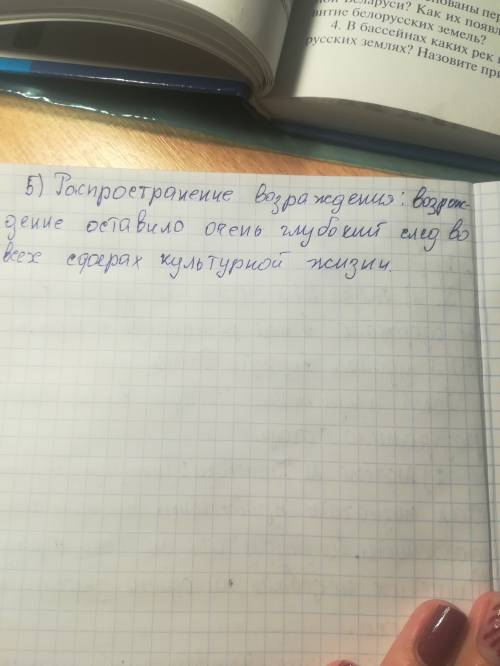 нованы пе
ной Беларуси? Как их появл
витие белорусских земель?
4. В бассейнах каких рек
русских землях? Назовите при
5) Распространение возраждения: возраж-
дение оставило очень глубокий след во
всех сферах культурной жизни.